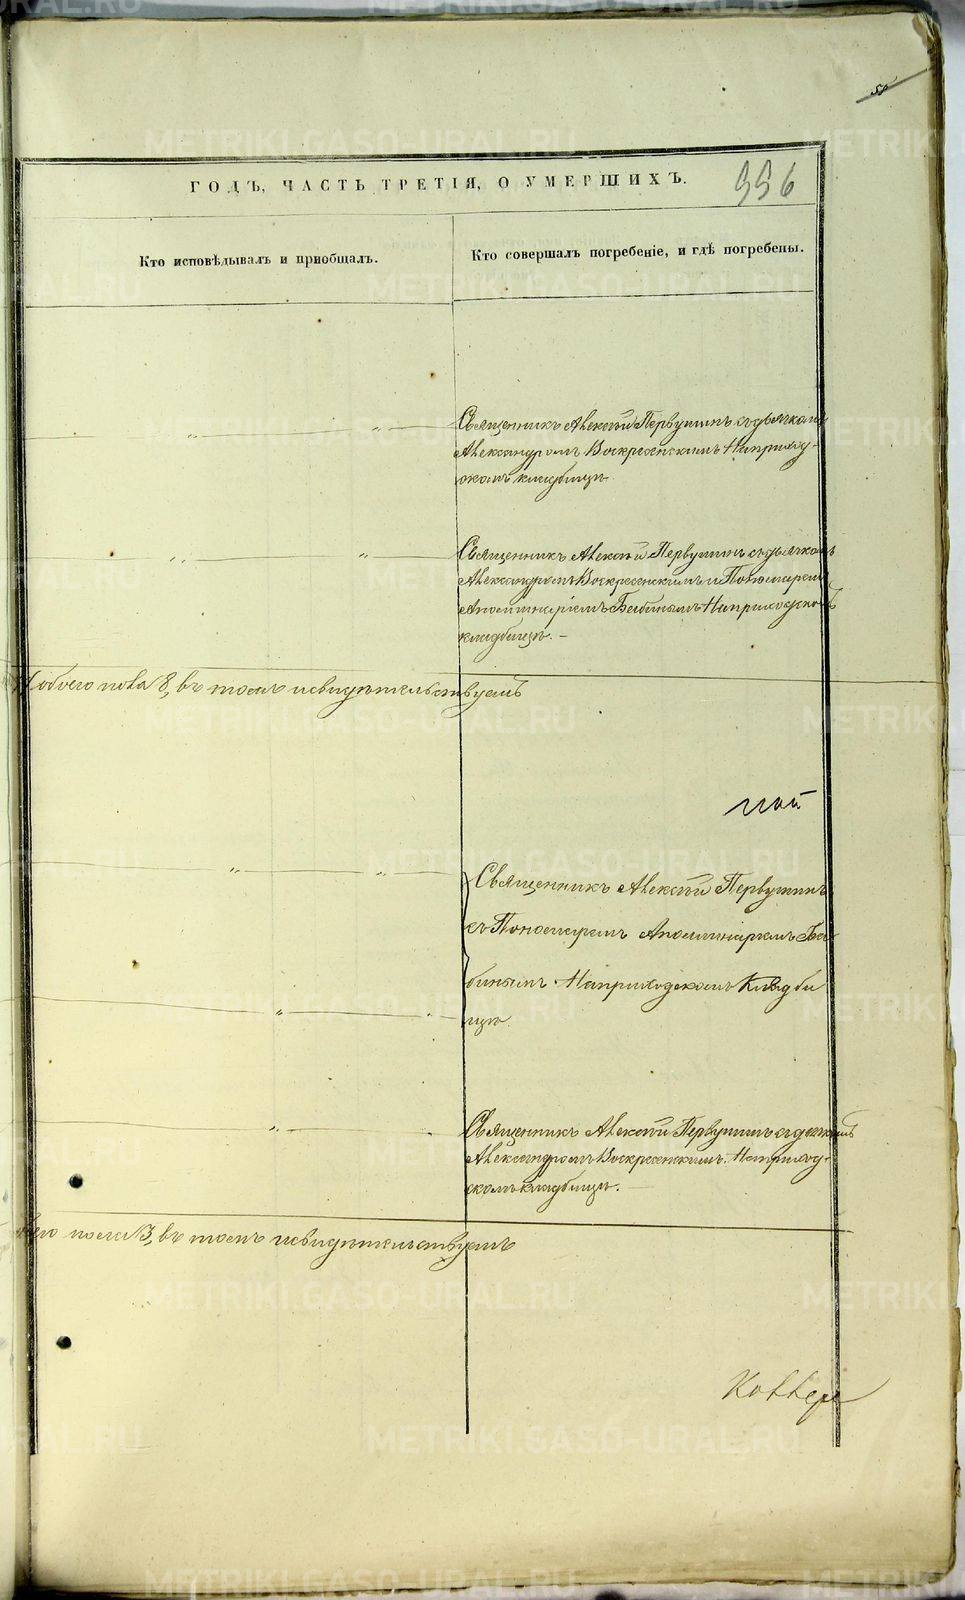 556
ГОДЪ, ЧАСТЬ ТРЕТІЯ, О УМЕРШИХЪ.
Кто исповѣдывалъ и приобщалъ.
Кто совершалъ погребеніе, и гдѣ погребены.
Священникъ Алексѣй Первушинъ съ дьячкомъ
Александромъ Воскресенскимъ На приход-
скомъ кладбищѣ
Священникъ Алексѣй Первушинъ съ дьячкомъ
Александромъ Воскресенскимъ и Пономаремъ
Аполинаріемъ Бабинымъ На приходскомъ
кладбищѣ. –
обоего пола 8, въ томъ и свидѣтельствуемъ
Священникъ Алексѣй Первушинъ
съ Пономаремъ Аполинаріемъ Ба-
бинымъ На приходскомъ Кладби
щѣ
Священникъ Алексѣй Первушинъ съ дьячкомъ
Александромъ Воскресенскимъ. На приход-
скомъ кладбищѣ. –
пола 3, въ томъ и свидѣтельствуемъ
METRIKI.GASO-URAL.RU